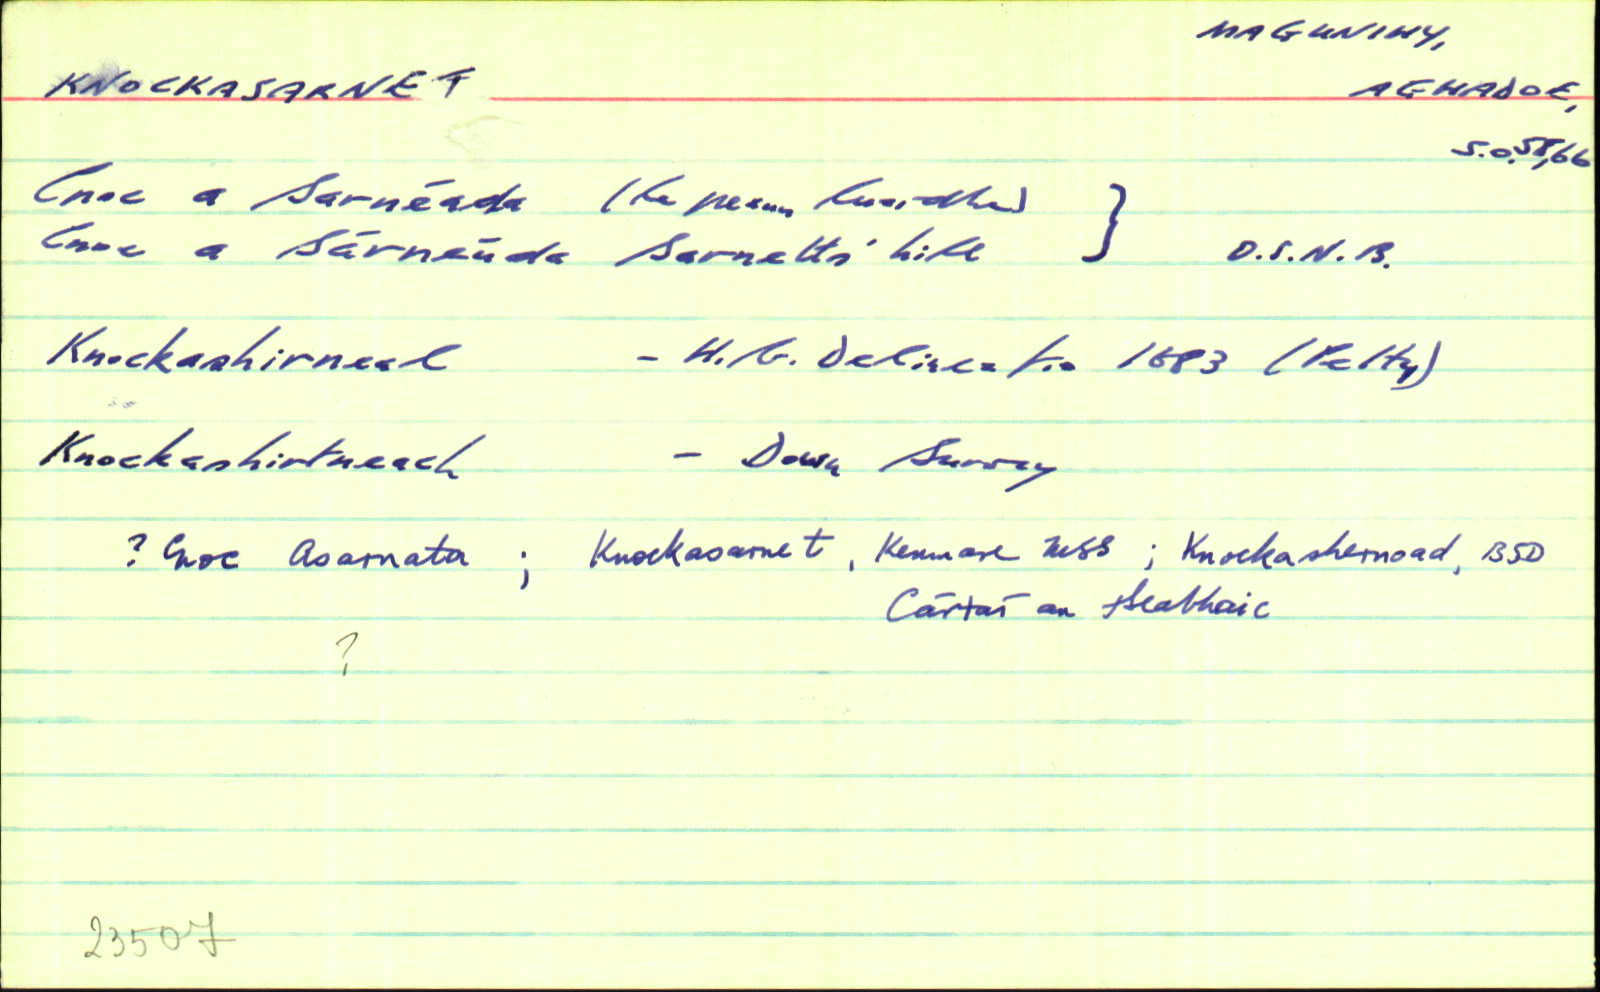 MAGUNIHY,
KNOCKASARNET
AGHADOE,
S.O. 58, 66
Cnoc a Sarnéada (le peann luaidhe) }
Cnoc a Sárneuda Sarnetts' hill } O.S.N.B.
Knockashirneal - H. G. Delineatio 1683 (Petty)
Knockashirtneach - Down Survey
? Cnoc Asarnata ; Knockasarnet, Kenmare MSS ; Knockashernoad, BSD
Cártaí an tSeabhaic
?
23507